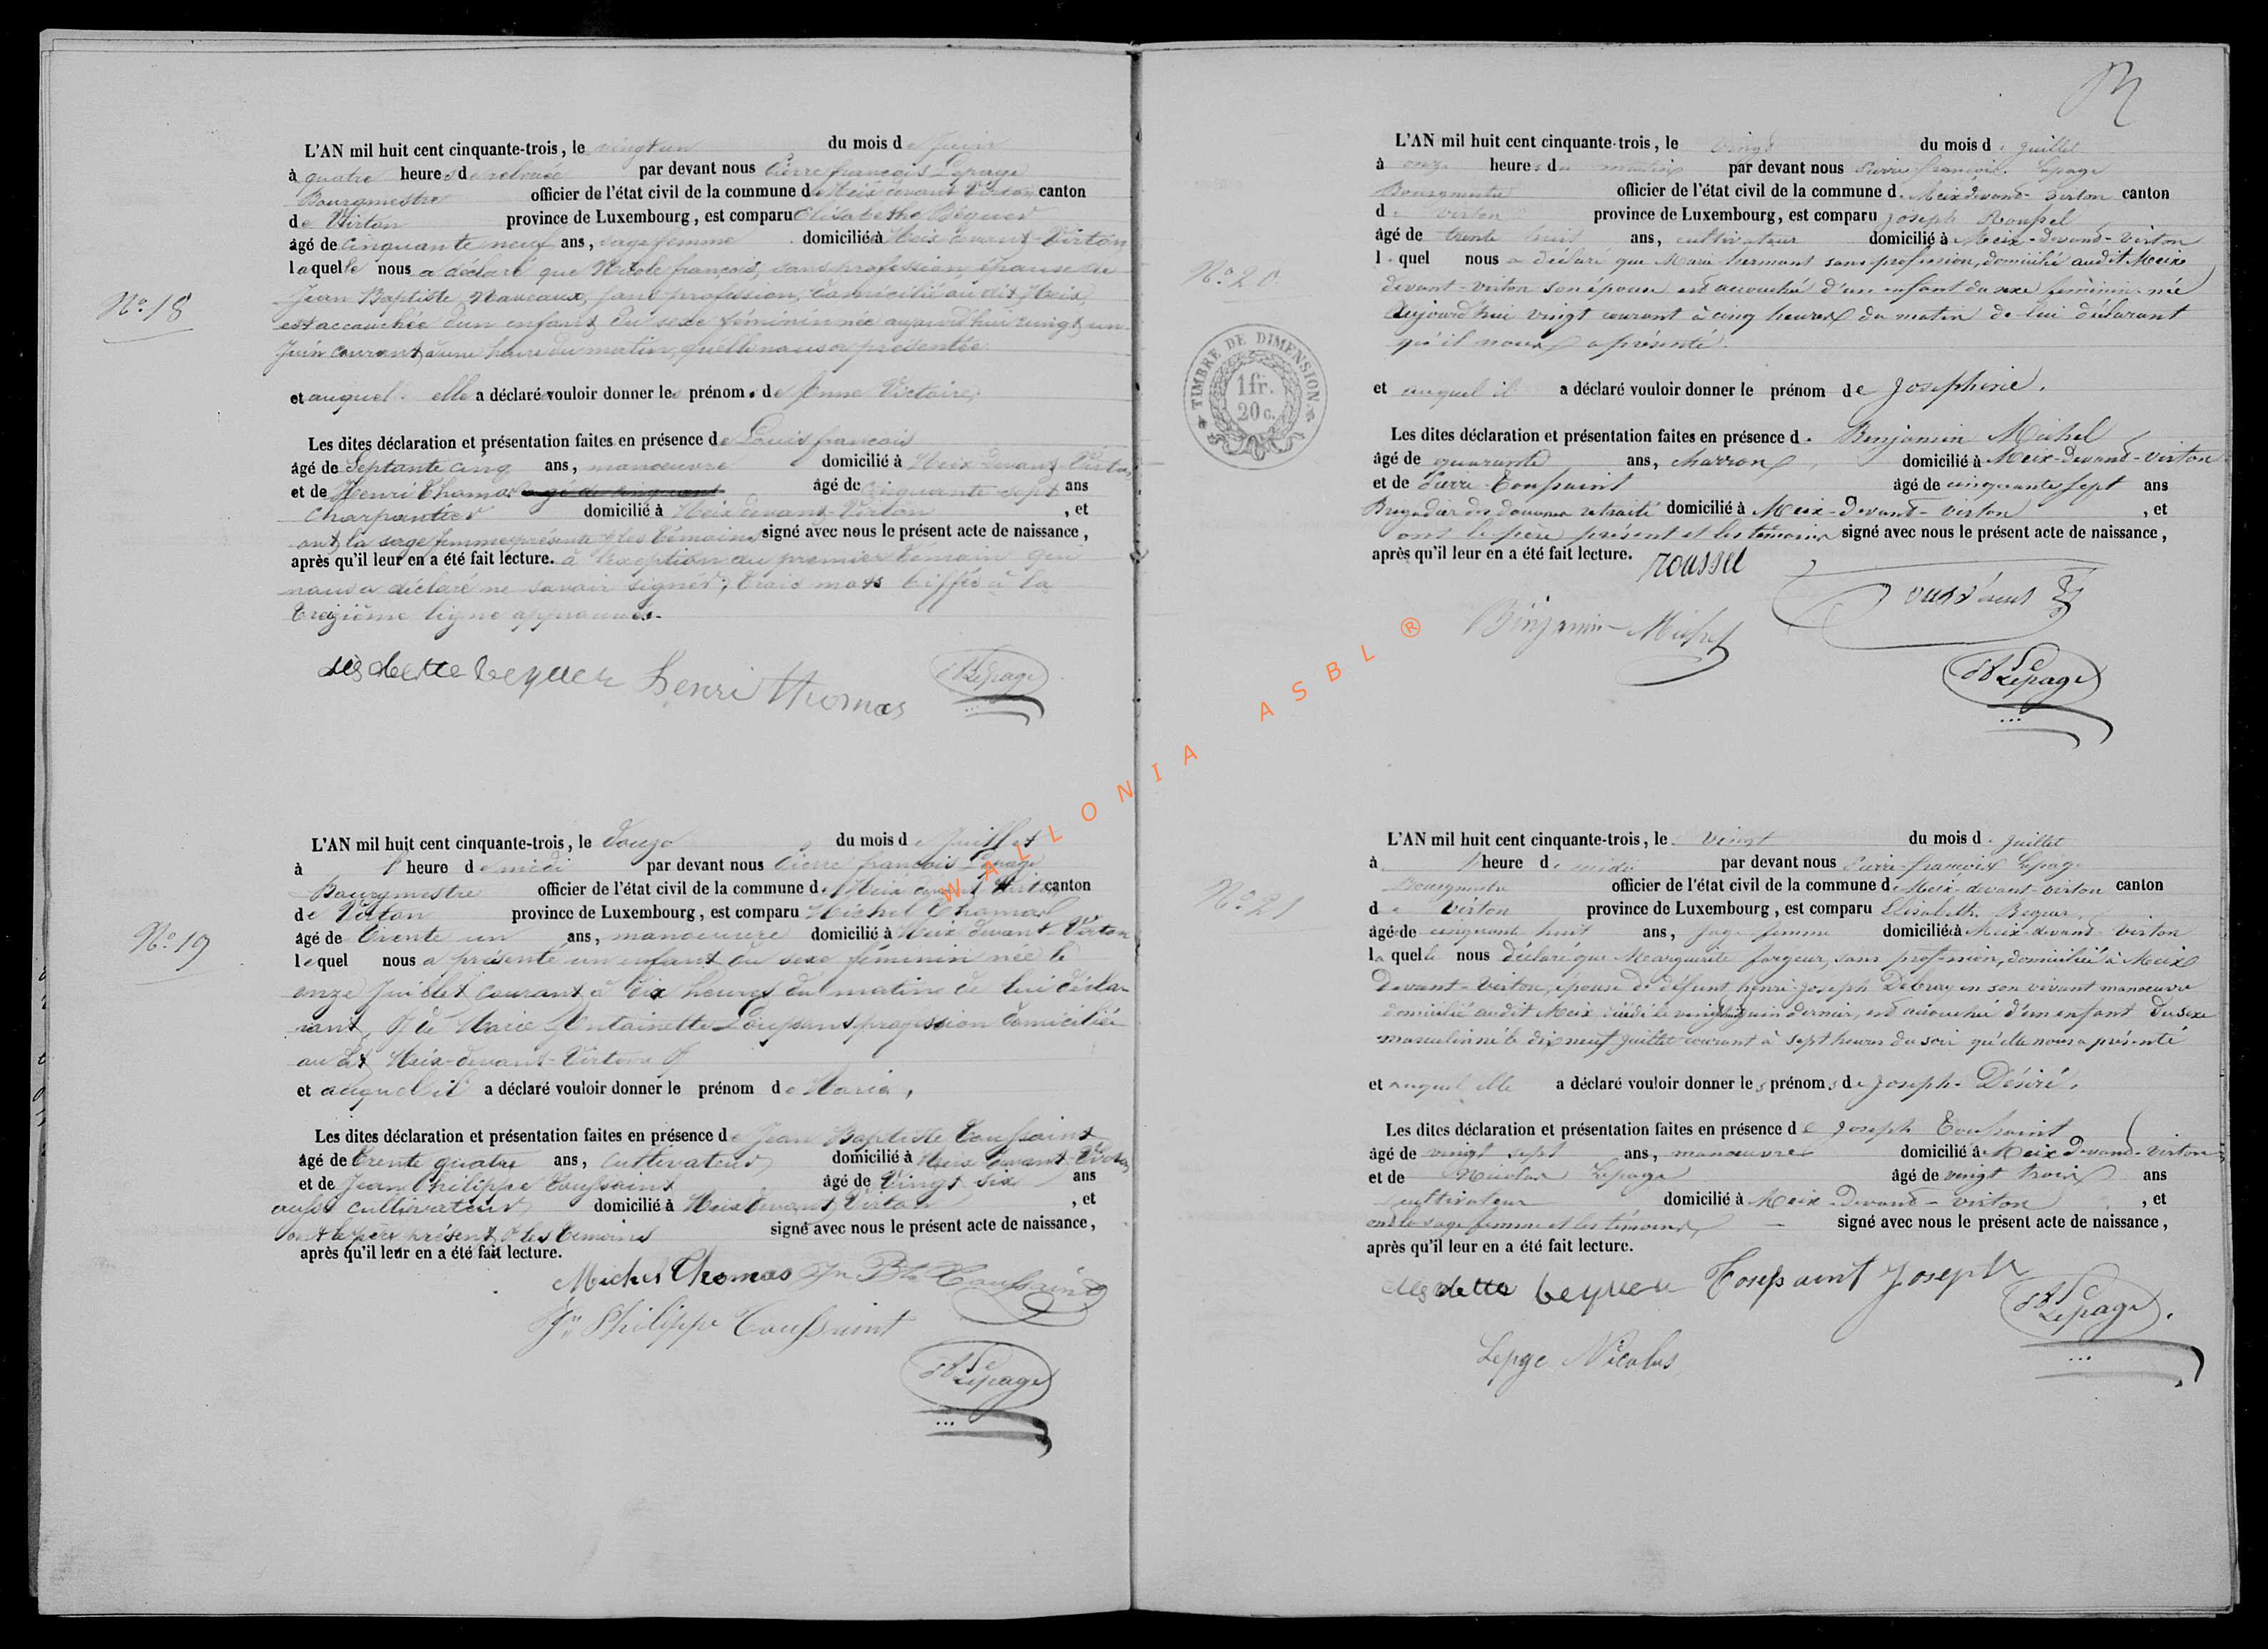 Nº 18
L'AN mil huit cent cinquante-trois, le vingt un du mois de Juin
à quatre heures de relevée par devant nous Pierre françois Lepage
Bourgmestre officier de l'état civil de la commune de Meix devant Virton canton
de Virton province de Luxembourg, est comparu Elisabethe Béguer
âgé de cinquante neuf ans, sage femme domiciliée à Meix devant-Virton
laquelle nous a déclaré que Nicole françois, sans profession, épouse de
Jean Baptiste Navaux, sans profession, domicilié au dit Meix,
est accouchée d'un enfant du sexe féminin née aujourd'hui vingt un
Juin courant, à une heure du matin, qu'elle nous a présentée
et auquel elle a déclaré vouloir donner les prénoms de Anne Victoire,
Les dites déclaration et présentation faites en présence de Louis françois
âgé de Septante cinq ans, manoeuvre domicilié à Meix devant Virton,
et de Henri Thomas âgé de cinquante sept ans
Charpentier domicilié à Meix devant-Virton , et
ont la sage femme présente et les témoins signé avec nous le présent acte de naissance,
après qu'il leur en a été fait lecture. à l'exception du premier témoin qui
nous a déclaré ne savoir signer; trois mots biffés à la
treizième ligne approuvés.
beguer Henri thomas Lepage
Nº 19
L'AN mil huit cent cinquante-trois, le douze du mois de Juillet
à l'heure de midi par devant nous Pierre françois Lepage
Bourgmestre officier de l'état civil de la commune de Meix devant Virton canton
de Virton province de Luxembourg, est comparu Michel Thomas
âgé de trente un ans, manoeuvre domicilié à Meix devant Virton
lequel nous a présenté un enfant du sexe féminin née le
onze Juillet courant à dix heures du matin de lui décla-
rant, & de Marie Antoinette sans profession domiciliée
au dit Meix-devant-Virton &
et auquel il a déclaré vouloir donner le prénom de Maria,
Les dites déclaration et présentation faites en présence de Jean Baptiste Toussaint
âgé de trente quatre ans, cultivateur domicilié à Meix devant Virton
et de Jean Philippe Toussaint âgé de Vingt six ans
aussi cultivateur domicilié à Meix devant Virton , et
ont le père présent & les témoins signé avec nous le présent acte de naissance,
après qu'il leur en a été fait lecture.
Michel Thomas Jn Bte Toussaint
Jn Philippe Toussaint
Lepage
Nº 20
TIMBRE DE DIMENSION
1 fr.
20 c.
L'AN mil huit cent cinquante-trois, le vingt du mois de juillet
à onze heures du matin par devant nous Pierre françois Lepage
Bourgmestre officier de l'état civil de la commune de Meix devand-virton canton
de virton province de Luxembourg, est comparu joseph Roussel
âgé de trente huit ans, cultivateur domicilié à Meix-devand-virton
lequel nous a déclaré que Marie hermant sans profession, domicilié audit Meix
devant-virton son épouse est accouché d'un enfant du sexe féminin née
aujourd'hui vingt courant à cinq heures du matin de lui déclarant
qu'il nous a présenté.
et auquel il a déclaré vouloir donner le prénom de josephine.
Les dites déclaration et présentation faites en présence de Benjamin Michel
âgé de quarante ans, charron, domicilié à Meix-devand-virton
et de Pierre Toussaint âgé de cinquante sept ans
Brigadier des douanes retraité domicilié à Meix-devant-virton , et
ont le père présent et les témoins signé avec nous le présent acte de naissance,
après qu'il leur en a été fait lecture.
roussel
Binjamin Michel
Lepage
Nº 21
L'AN mil huit cent cinquante-trois, le vingt du mois de juillet
à l'heure de midi par devant nous Pierre-françois Lepage
Bourgmestre officier de l'état civil de la commune de Meix-devant-virton canton
de virton province de Luxembourg, est comparu Elisabeth Bequer,
âgée de cinquante huit ans, sage femme domiciliée à Meix-devand-virton
laquelle nous déclaré que Marguerite forgeur, sans profession, domiciliée à Meix
Devant-virton, épouse de défunt henri-joseph Debray en son vivant manoeuvre
domicilié audit Meix décédé le juin dernier, est accouché d'un enfant du sexe
masculin né le dix neuf juillet courant à sept heures du soir qu'elle nous a présenté
et auquel elle a déclaré vouloir donner les prénoms de joseph-Désiré.
Les dites déclaration et présentation faites en présence de joseph Toussaint
âgé de vingt sept ans, manoeuvre domicilié à Meix devand-virton
et de Nicolas Lepage âgé de vingt trois ans
cultivateur domicilié à Meix-devand-virton , et
ont la sage femme et les témoins signé avec nous le présent acte de naissance,
après qu'il leur en a été fait lecture.
beguer Toussaint joseph
Lepage
Lepge Nicolas
WALLONIA ASBL ®